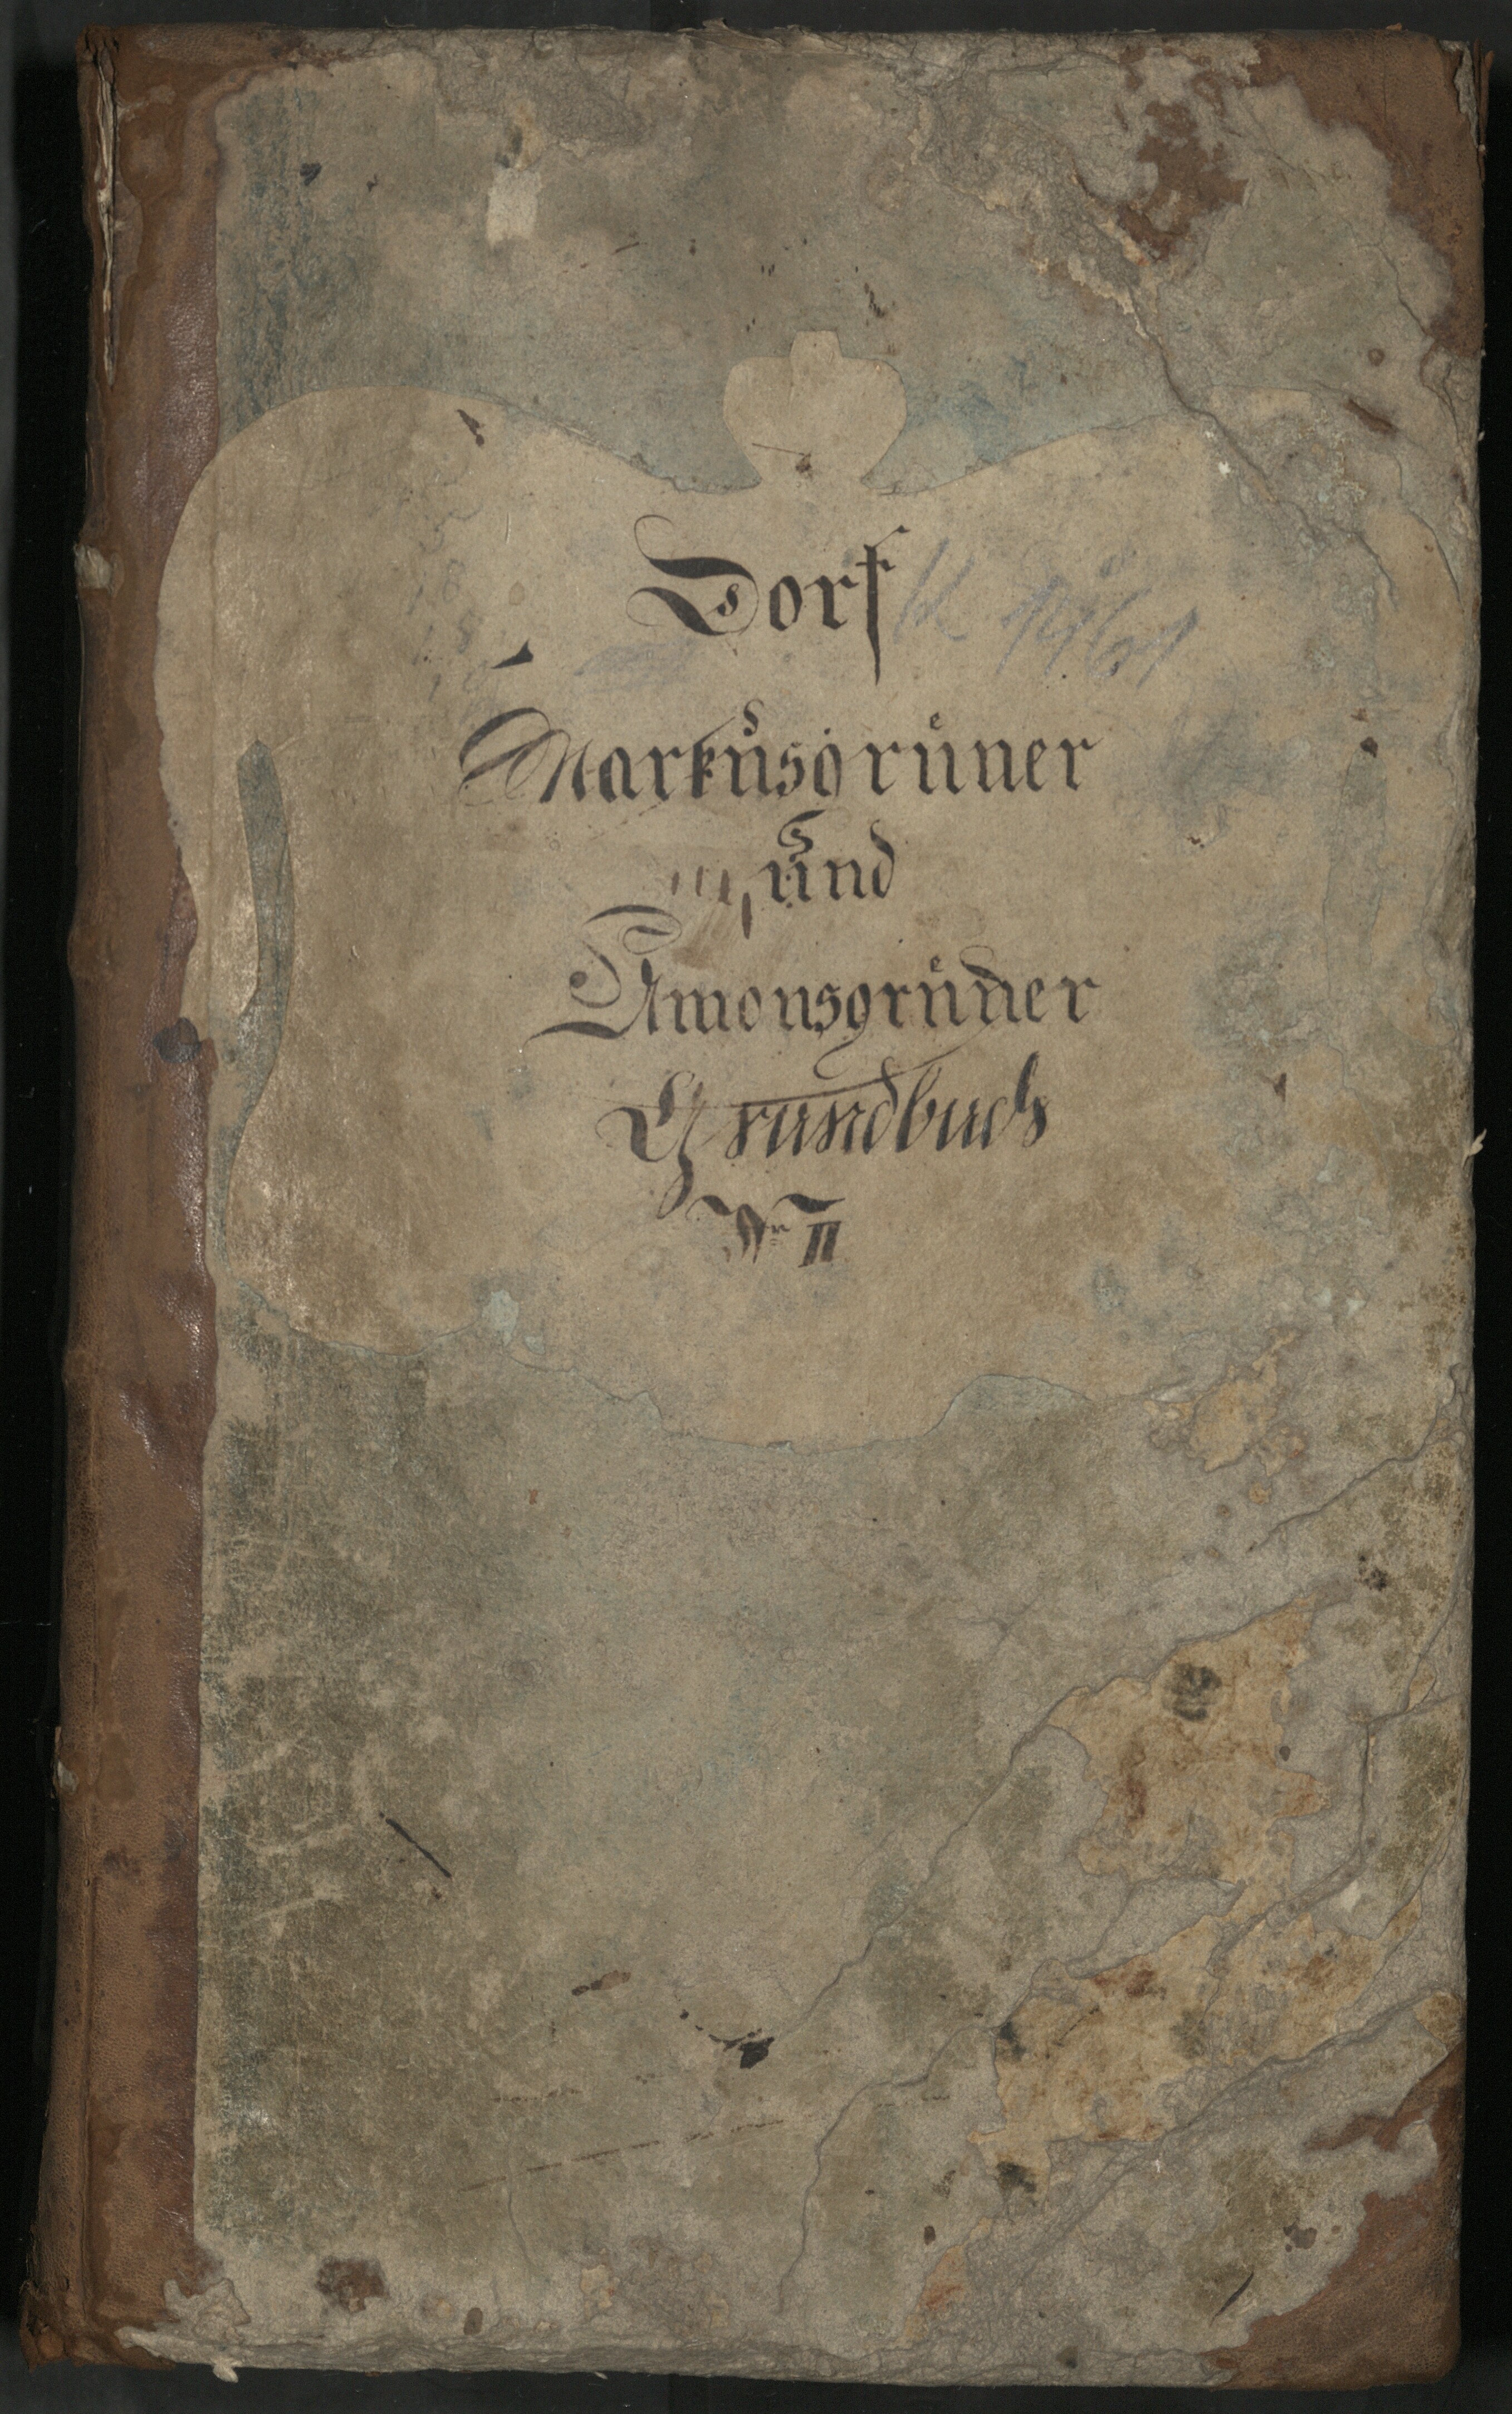 Dorf
Markusgrüner
und
Amonsgrüner
Grundbuch
Nr II